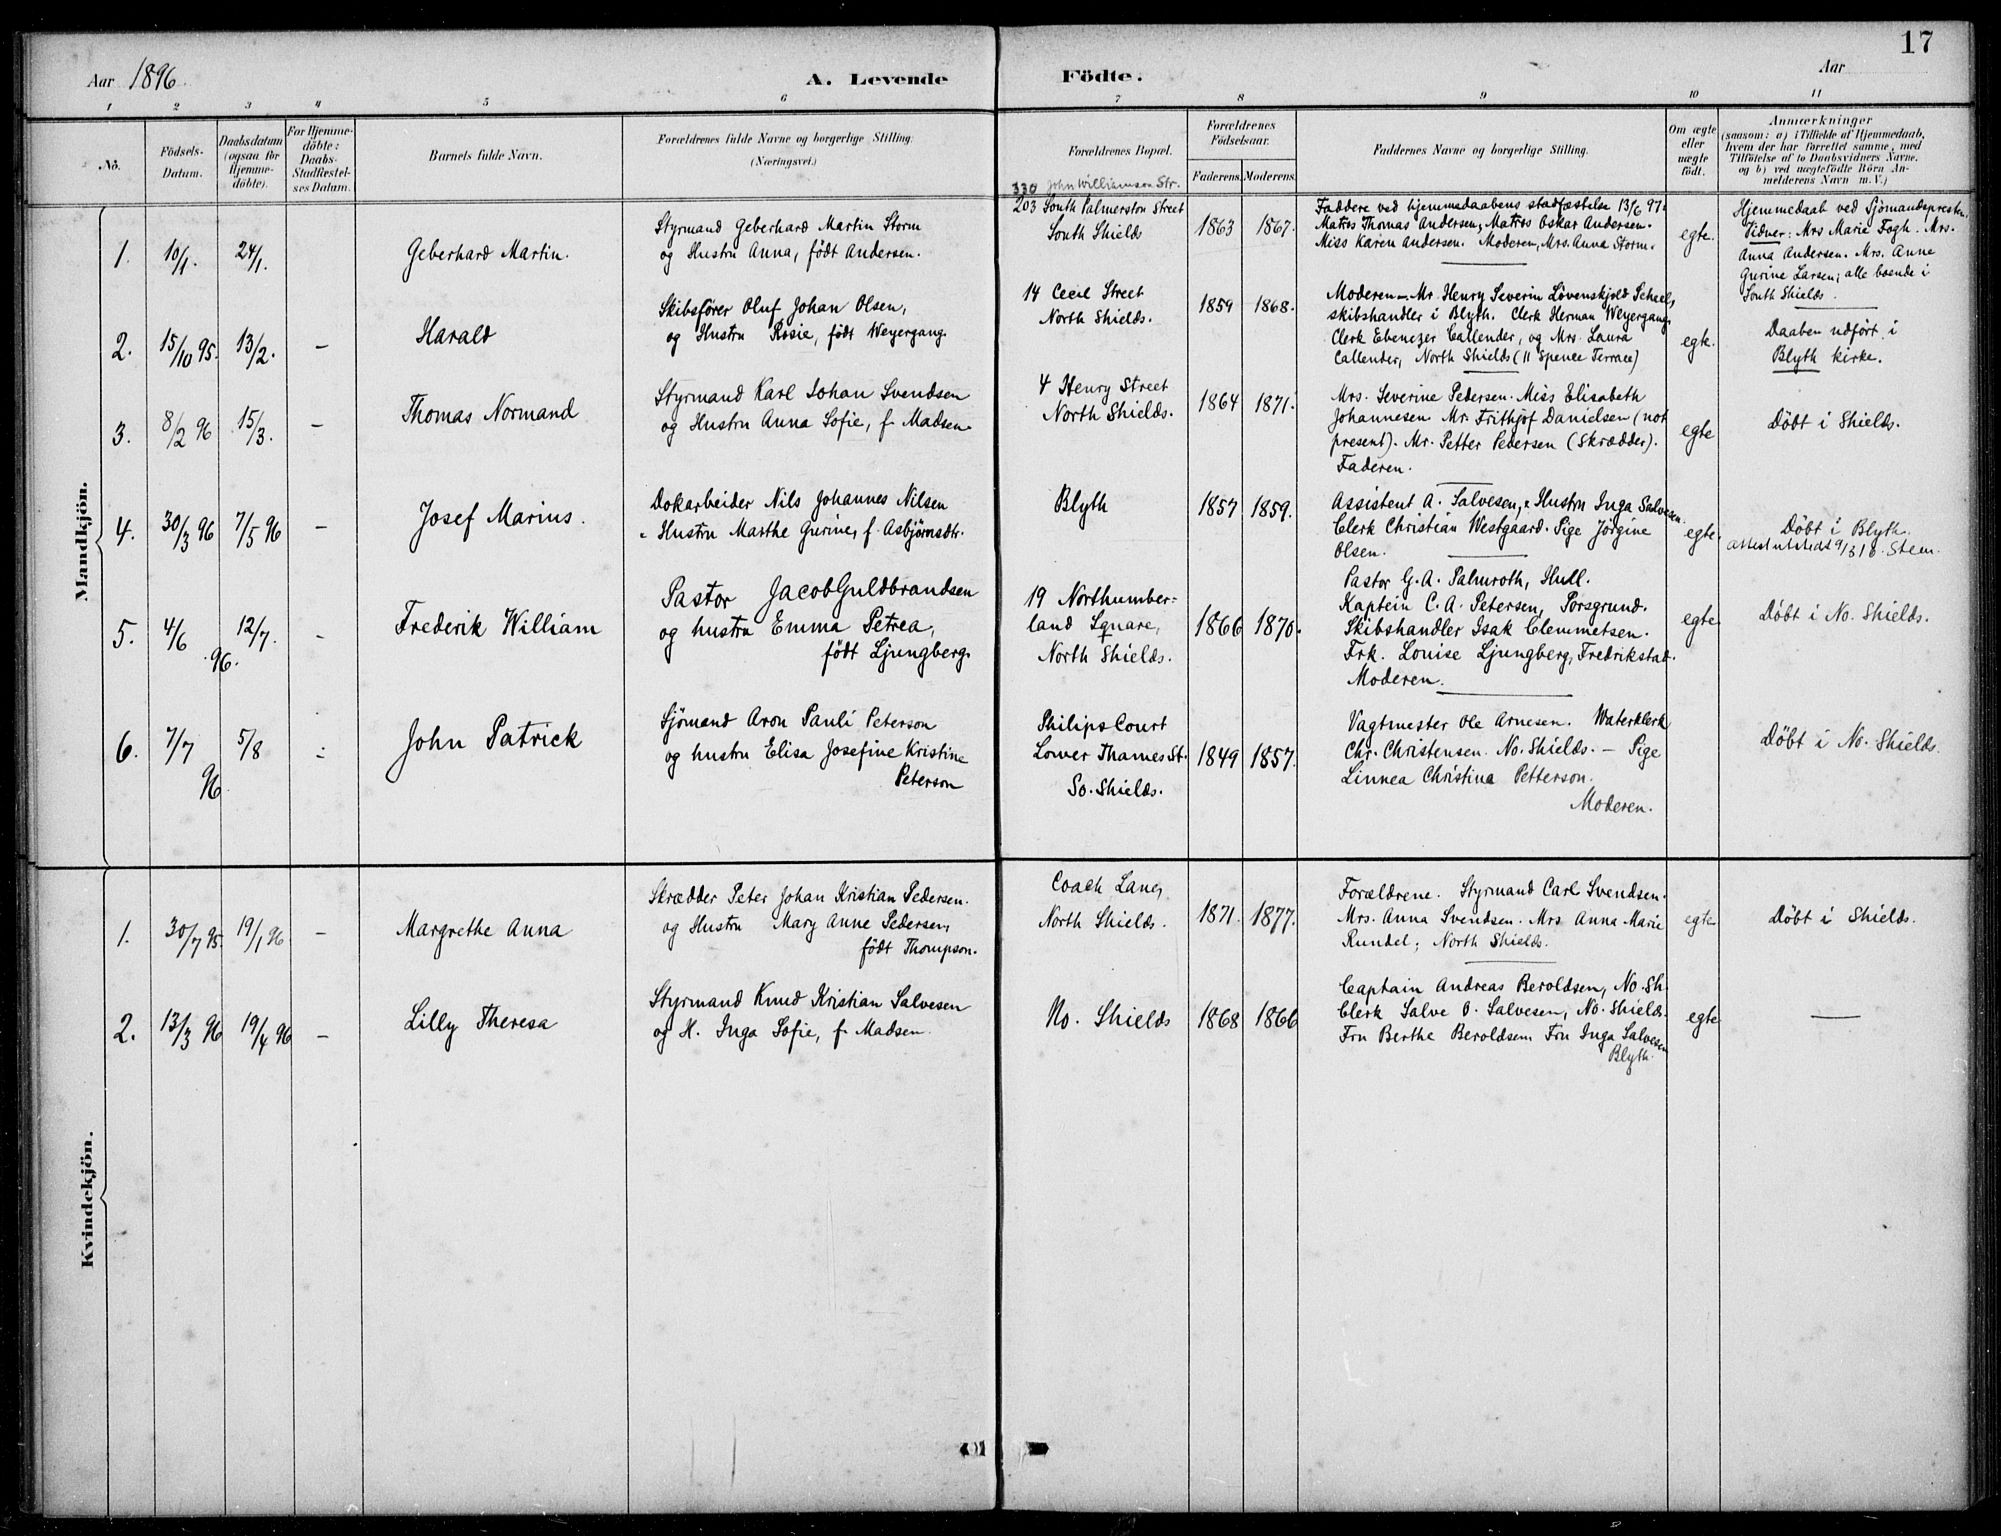 17
Aar 1896
A. Levende Födte.
Aar
1 2 3 4 5 6 7 8 9 10 11
No.
Födsels-
Datum.
Daabsdatum
(ogsaa for
Hjemme-
döbte).
For Hjemme-
döbte:
Daabs-
Stadfæstel-
ses Datum.
Barnets fulde Navn.
Forældrenes fulde Navne og borgerlige Stilling.
(Næringsvei.)
Forældrenes Bopæl.
Forældrenes
Födselsaar.
Faderens. Moderens.
Faddernes Navne og borgerlige Stilling.
Om ægte
eller
uægte
födt.
Anmærkninger
(saasom: a) i Tilfælde af Hjemmedaab,
hvem der har forrettet samme, med
Tilföielse af to Daabsvidners Navne.
og b) ved uægtefödte Börn An-
melderens Navn m. V.)
Mandkjön.
1. 10/1. 24/1.
Geberhard Martin.
Styrmand Geberhard Martin Storm
og Hustru Anna, født Andersen.
330 John Williamson Str.
203 South Palmerston Street
South Shields
1863 1867.
Faddere ved hjemmedaabens stadfæstelse 13/6 97:
Matros Thomas Andersen, Matros Oskar Andersen.
Miss Karen Andersen. Moderen, Mrs. Anna Storm.
egte.
Hjemmedaab ved Sjömandspresten.
Vidner: Mrs Marie Fogh. Mrs.
Anna Andersen. Mrs. Anne
Gurine Larsen; alle boende i
South Shields.
2. 15/10 95. 13/2. –
Harald
Skibsfører Oluf Johan Olsen,
og Hustru Rosie, født Weyergang.
14 Cecil Street
North Shields.
1859 1868.
Moderen – Mr. Henry Severin Lövenskjold Scheel,
skibshandler i Blyth. Clerk Herman Weyergang.
Clerk Ebenezer Callender, og Mrs. Laura
Callender, North Shields (11 Spence Terrace)
egte.
Daaben udført i
Blyth kirke.
3. 8/2 96 15/3. –
Thomas Normand
Styrmand Karl Johan Svendsen
og Hustru Anna Sofie, f. Madsen
4 Henry Street
North Shields.
1864 1871.
Mrs. Severine Pedersen. Miss Elisabeth
Johannesen Mr. Frithjof Danielsen (not
present). Mr. Petter Pedersen (Skrædder).
Faderen.
egte
Døbt i Shields.
4. 30/3 96 7/5 96 –
Josef Marius.
Dokarbeider Nils Johannes Nilsen
" Hustru Marthe Gurine, f. Asbjørnsdtr.
Blyth
1857 1859.
Assistent A. Salvesen, " Hustru Inga Salvesen.
Clerk Christian Westgaard. Pige Jörgine
Olsen.
egte.
Døbt i Blyth.
attest utstedt 9/3 18. Steen.
5. 4/6 96. 12/7. –
Frederik William
Pastor Jacob Guldbrandsen
og hustru Emma Petrea,
født Ljungberg.
19 Northumber-
land Square,
North Shields.
1866 1870.
Pastor G. A. Palmroth, Hull.
Kaptein C. A. Petersen, Porsgrund.
Skibshandler Isak Clemmetsen.
Frk. Louise Ljungberg, Fredrikstad.
Moderen.
egte
Døbt i No. Shields.
6. 7/7 96 5/8 –
John Patrick
Sjömand Aron Pauli Peterson
og hustru Elisa Josefine Kristine
Peterson
Philips Court
Lower Thames St.
So. Shields.
1849 1857.
Vagtmester Ole Arnesen. Waterklerk
Chr. Christensen. No. Shields. – Pige
Linnea Christina Petterson.
Moderen.
Døbt i No. Shields.
Kvindekjön.
1. 30/7 95. 19/1 96 –
Margrethe Anna
Skrædder Peter Johan Kristian Pedersen.
og Hustru Mary Anne Pedersen,
født Thompson.
Coach Lane,
North Shields.
1871. 1877.
Forældrene. Styrmand Carl Svendsen.
Mrs. Anna Svendsen. Mrs Anna Marie
Rundel; North Shields.
egte
Døbt i Shields.
2. 13/3 96 19/4 96 –
Lilly Theresa
Styrmand Knud Kristian Salvesen
og H. Inga Sofie, f. Madsen.
No. Shields
1868 1866
Captain Andreas Beroldsen, No. Sh.
Clerk Salve O. Salvesen, No. Shields.
Fru Berthe Beroldsen. Fru Inga Salvesen
Blyth.
egte
—